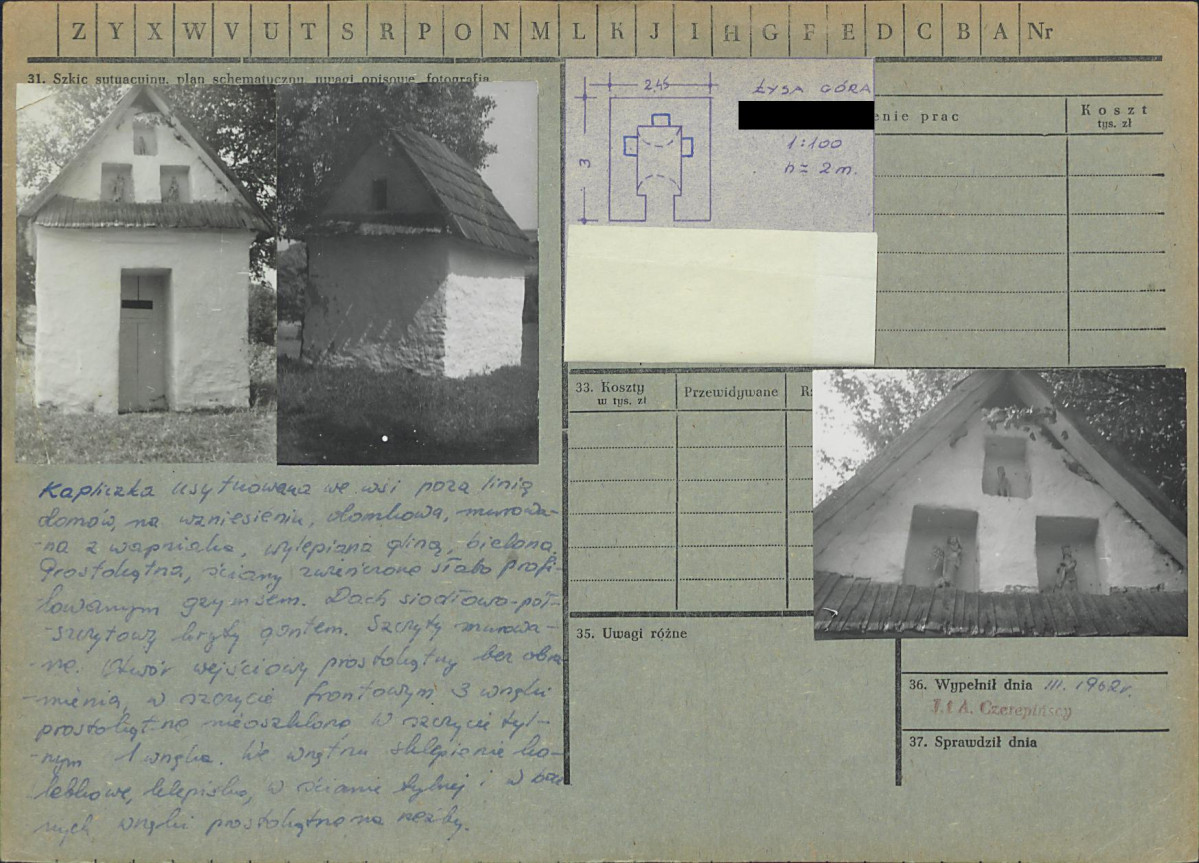 Z Y X W V U T S R P O N M L K J I H G F E D C B A Nr
31. Szkic sytuacyjny, plan schematyczny, uwagi opisowe, fotografia
2,45
3
ŁYSA GÓRA
1:100
h = 2 m.
enie prac
Koszt
tys. zł
33. Koszty
w tys. zł
Przewidywane
35. Uwagi różne
36. Wypełnił dnia III. 1962 r.
J. i A. Czerepińscy
37. Sprawdził dnia
Kapliczka usytuowana we wsi poza linią
domów, na wzniesieniu, domkowa, murowa-
-na z wapniaka, wylepiana gliną, bielona.
Prostokątna, ściany zwieńczone słabo profi-
lowanym gzymsem. Dach siodłowo-pół-
-szczytowy kryty gontem. Szczyty murowa-
-ne. Otwór wejściowy prostokątny bez obra-
mienia, w szczycie frontowym 3 wnęki
prostokątne nieoszklone w szczycie tyl-
-nym 1 wnęka. We wnętrzu sklepienie ko-
lebkowe, klepisko, w ścianie tylnej i w bocz
nych wnęki prostokątne na rzeźby.